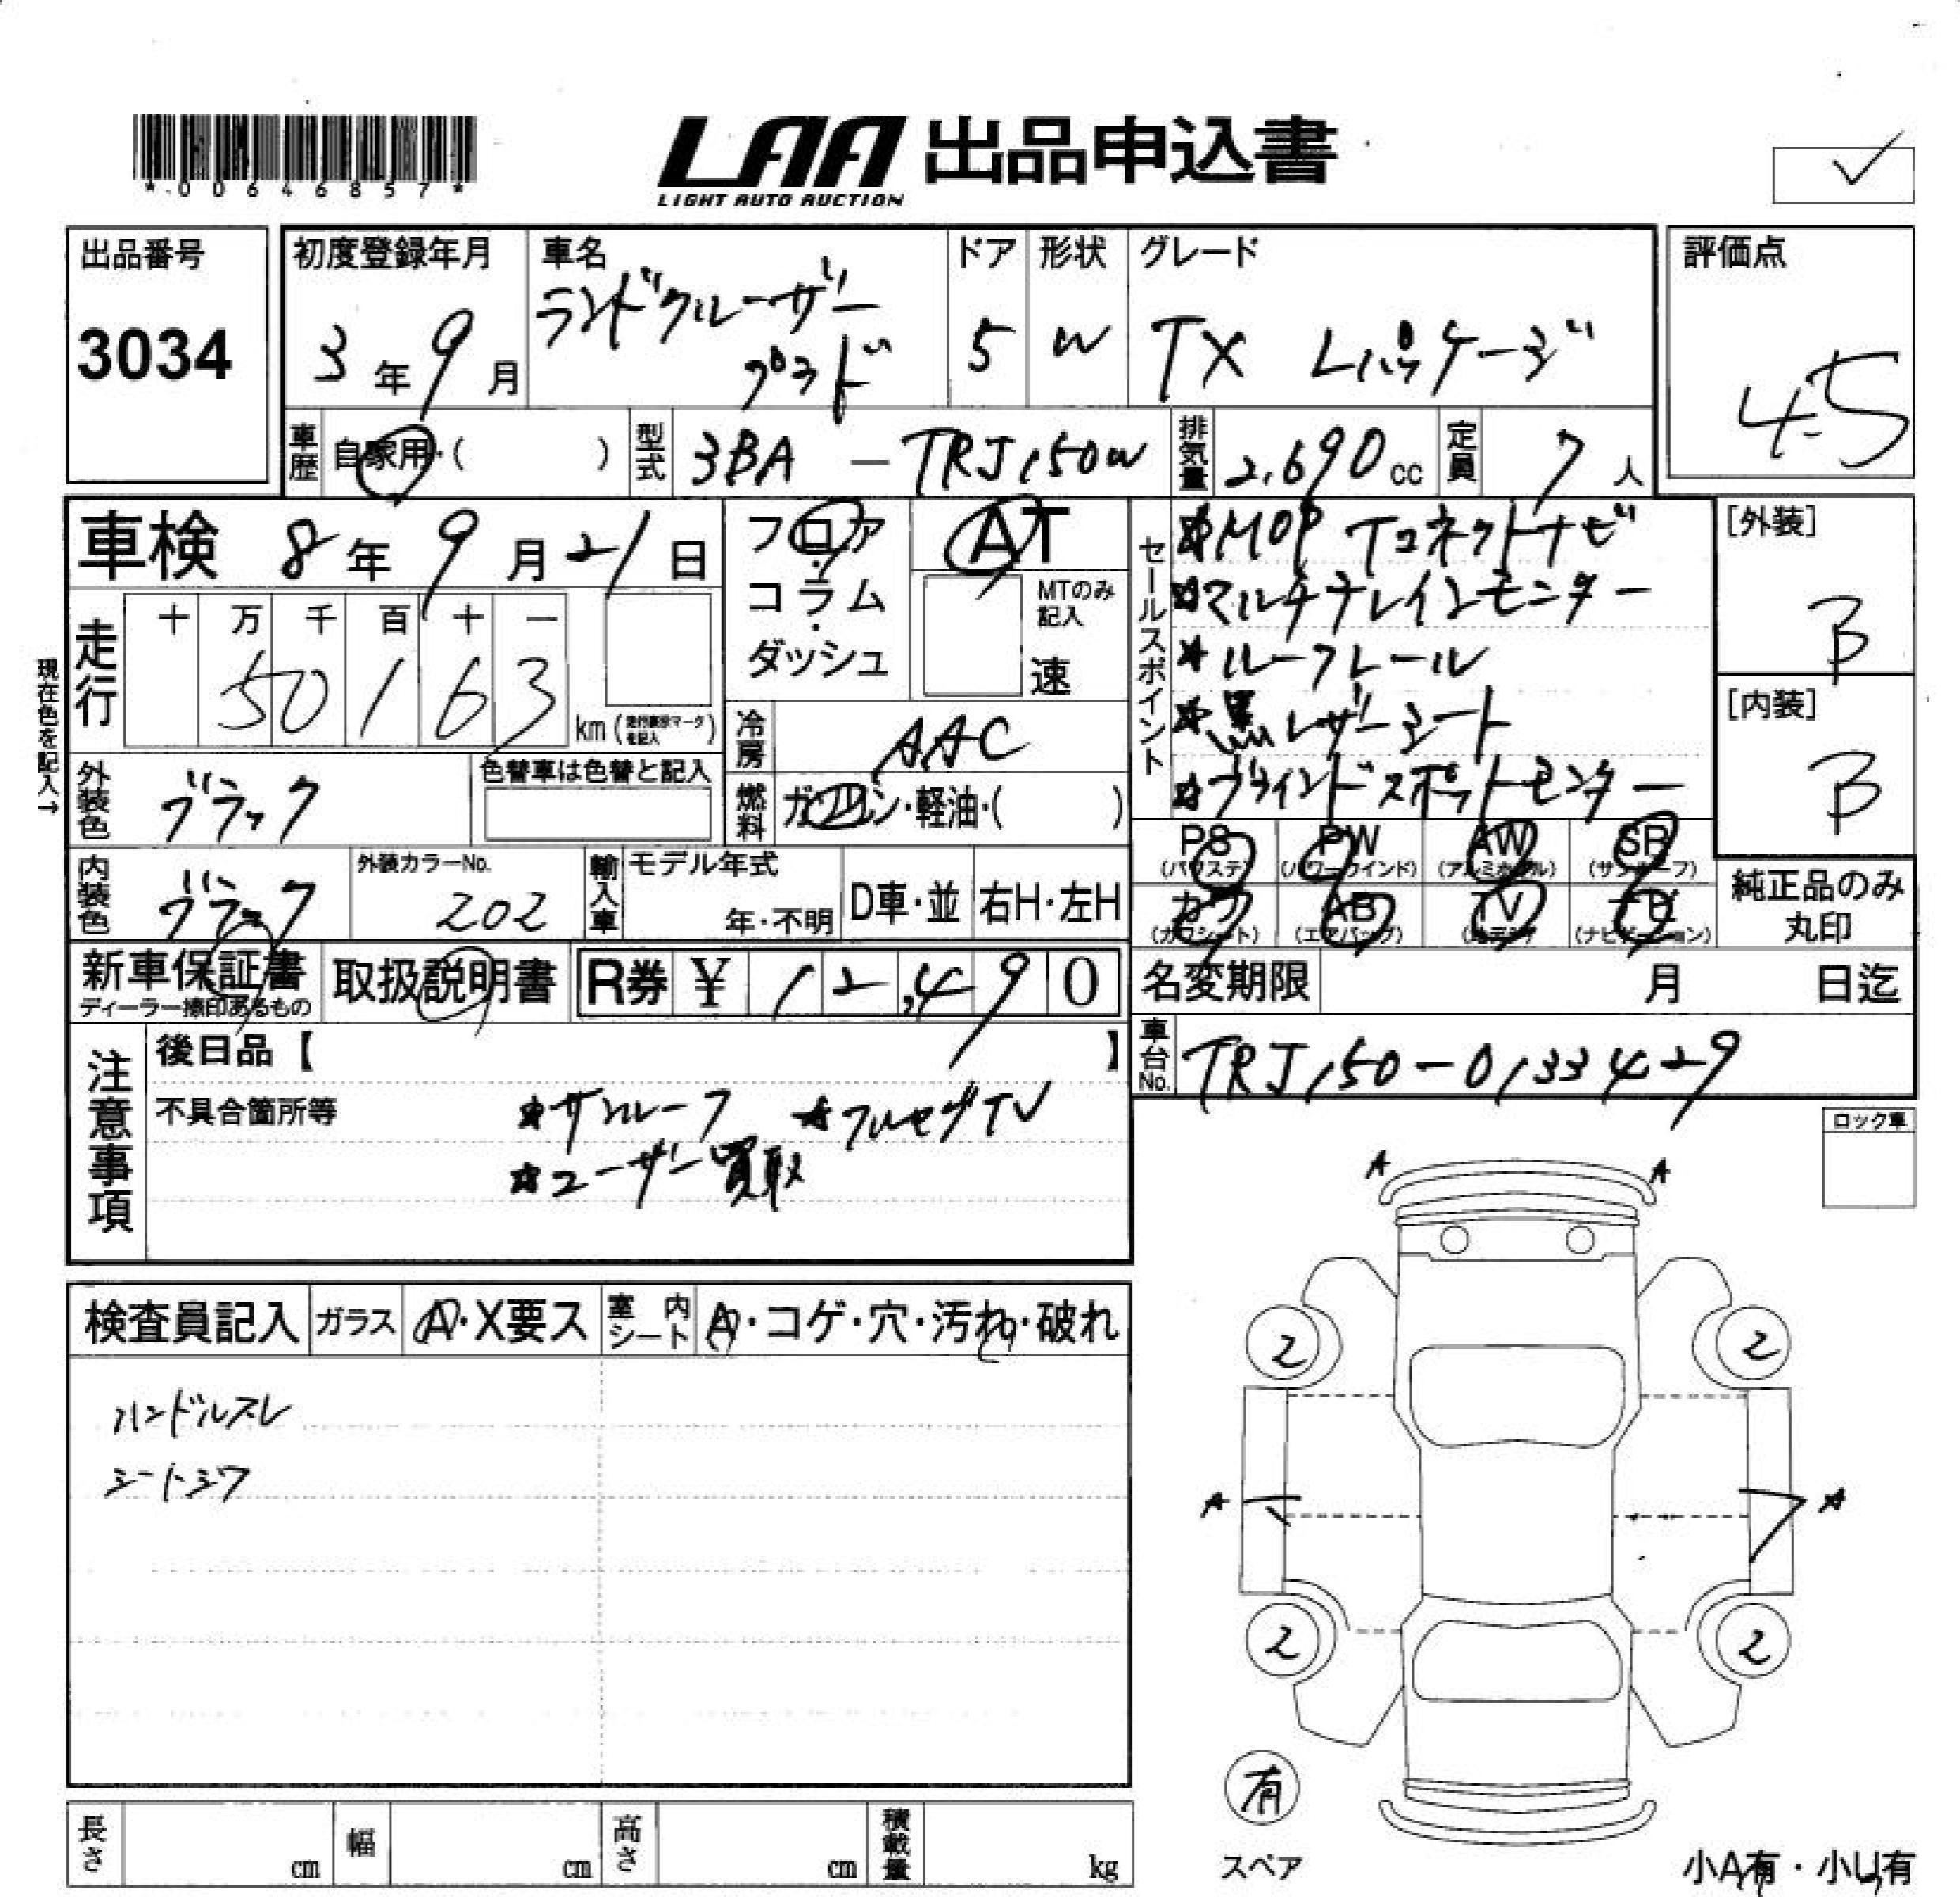 *00646857*
LAA 出品申込書
LIGHT AUTO AUCTION
出品番号
3034
初度登録年月
3年9月
車名
ランドクルーザー
プラド
ドア
5
形状
W
グレード
TX Lパッケージ
評価点
4.5
車歴
自家用・( )
型式
3BA-TRJ150W
排気量
2,690cc
定員
7人
車検 8年9月21日
フロア
・
コラム
・
ダッシュ
AT
MTのみ
記入
速
セールスポイント
★MOP Tコネクトナビ
★マルチテレインモニター
★ルーフレール
★黒レザーシート
★ブラインドスポットモニター
[外装]
B
[内装]
B
現在色を記入→
走行
十 万 千 百 十 一
5 0 1 6 3
km(走行表示マークを記入)
冷房
AAC
外装色
ブラック
色替車は色替と記入
燃料
ガソリン・軽油・( )
内装色
ブラック
外装カラーNo.
202
輸入車
モデル年式
年・不明
D車・並
右H・左H
PS
(パワステ)
PW
(パワーウインド)
AW
(アルミホイル)
SR
(サンルーフ)
カワ
(カワシート)
AB
(エアバック)
TV
(地デジ)
ナビ
(ナビゲーション)
純正品のみ
丸印
新車保証書
ディーラー捺印あるもの
取扱説明書
R券 ¥ 12,490
名変期限 月 日迄
車台No.
TRJ150-0133429
注意事項
後日品【 】
不具合箇所等
★サンルーフ ★フルセグTV
★ユーザー買取
ロック車
検査員記入
ガラス
A・X要ス
室内シート
A・コゲ・穴・汚れ・破れ
ハンドルスレ
シートシワ
A A
2 2
A A
2 2
有
スペア
小A有・小U有
長さ cm
幅 cm
高さ cm
積載量 kg